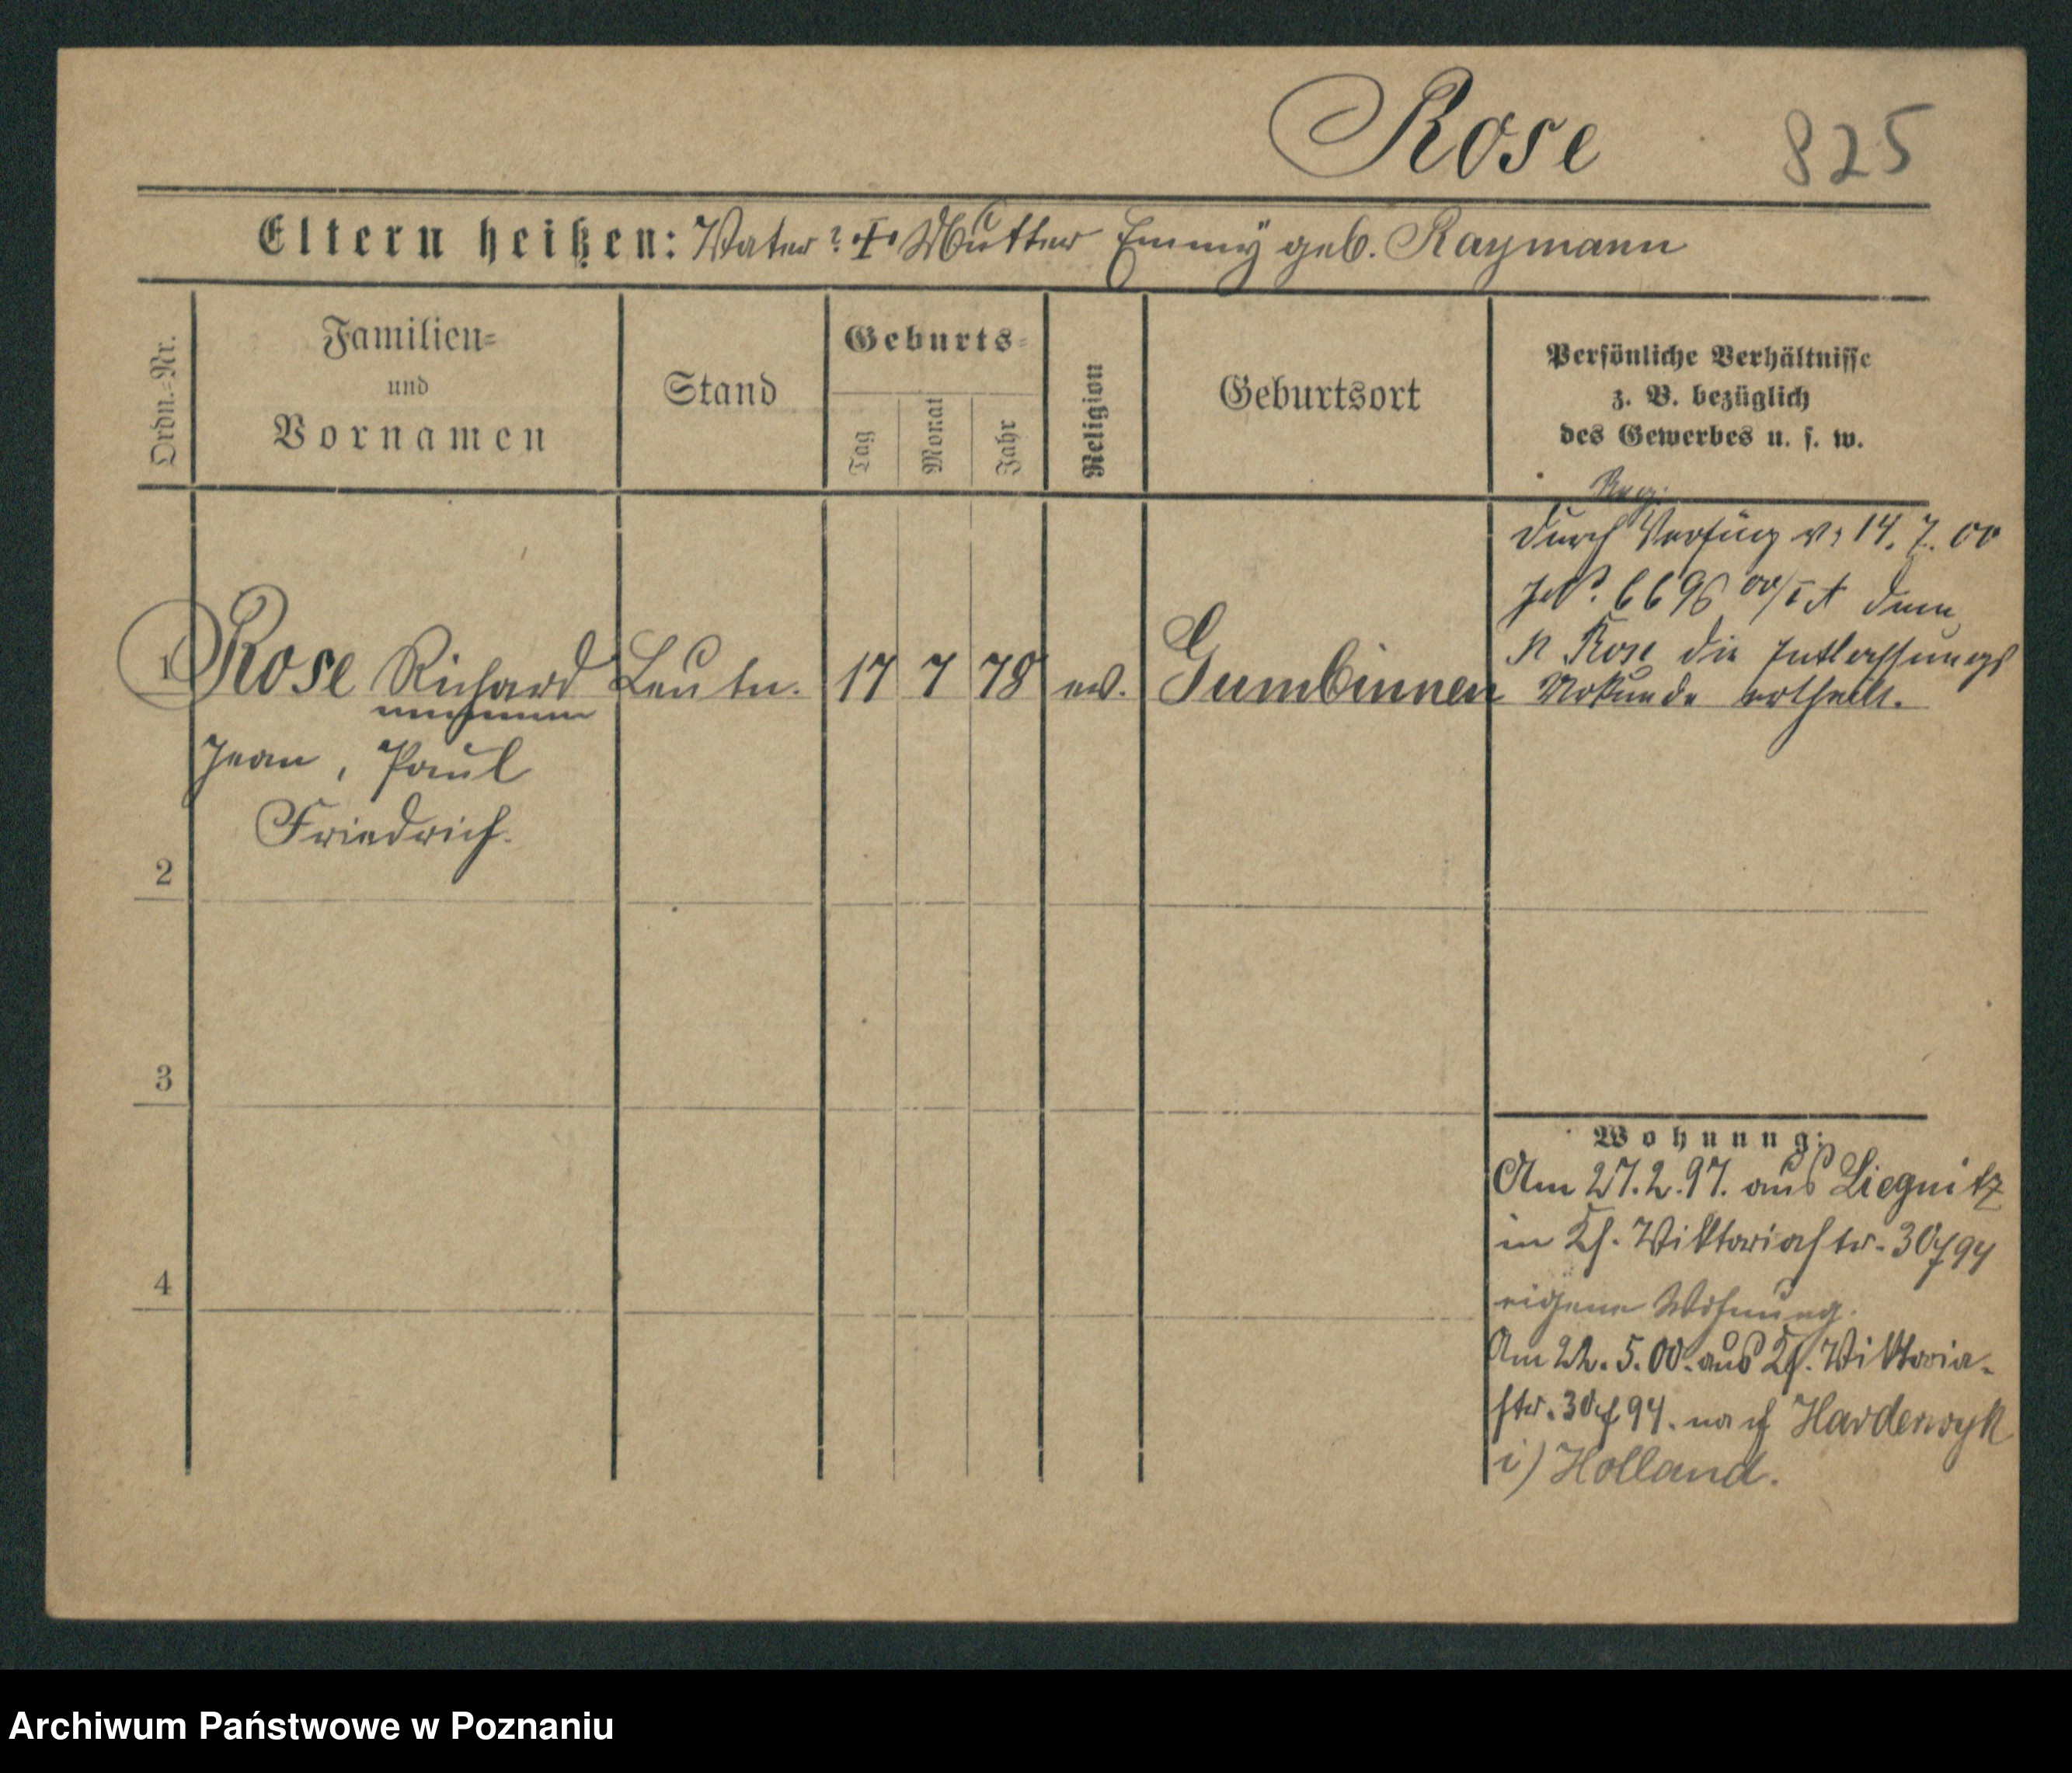 Rose 825
Eltern heißen: Vater ? † Mutter Emmy geb. Raymann
Ordn.-Nr.
Familien-
und
Vornamen
Stand
Geburts-
Tag
Monat
Jahr
Religion
Geburtsort
Persönliche Verhältnisse
z. B. bezüglich
des Gewerbes u. s. w.
Reg.
durch Verfüg v: 14. 7. 00
6696 00/I A dem
p Rose die Entlassungs
Urkunde ertheilt.
1 Rose Richard Leutn. 17 7 78 ev. Gumbinnen
Jean, Paul
Friedrich.
2
3
4
Wohnung:
Am 27.2.97. aus Liegnitz
in Viktoriastr. 30/94
eigene Wohnung.
Am 22. 5. 00. aus Viktoria-
str. 30/94. nach Harderwyk
i) Holland.
Archiwum Państwowe w Poznaniu